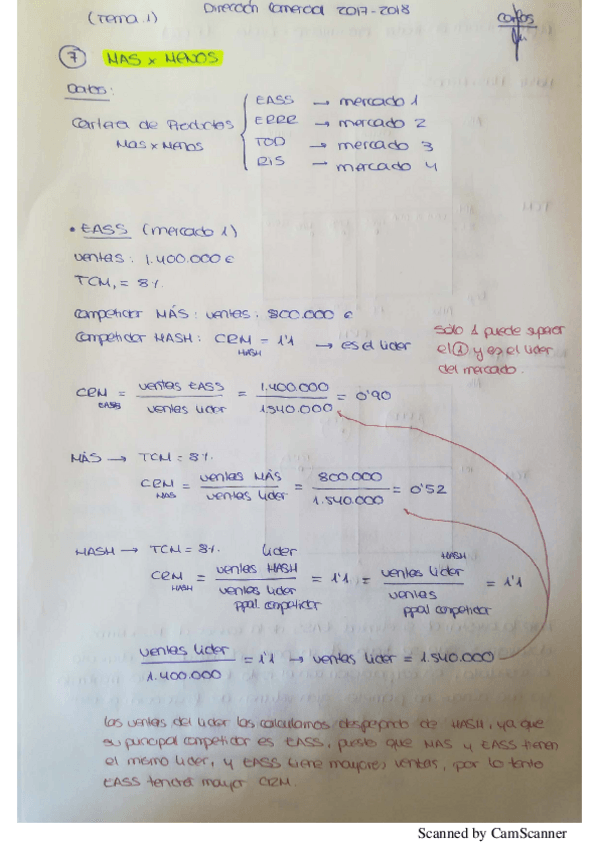 (Tema 1)
Dirección Comercial 2017-2018
Carlos
7 MAS x MENOS
Datos:
Cartera de Productos
Mas x Menos
EASS → mercado 1
ERRE → mercado 2
TOD → mercado 3
RIS → mercado 4
• EASS (mercado 1)
ventas: 1.400.000 €
TCM₁ = 8%
competidor MÁS: ventas: 800.000 €
Competidor HASH: CRM HASH = 1'1 → es el líder
sólo 1 puede superar
el 1 y es el líder
del mercado.
CRM EASS = ventas EASS / ventas líder = 1.400.000 / 1.540.000 = 0'90
MÁS → TCM = 8%.
CRM MAS = ventas MÁS / ventas líder = 800.000 / 1.540.000 = 0'52
HASH → TCM = 8%. líder
CRM HASH = ventas HASH / ventas líder ppal. competidor = 1'1 = ventas líder HASH / ventas ppal competidor = 1'1
ventas líder / 1.400.000 = 1'1 → ventas líder = 1.540.000
Las ventas del líder las calculamos despejando de HASH, ya que
su principal competidor es EASS, puesto que MAS y EASS tienen
el mismo líder, y EASS tiene mayores ventas, por lo tanto
EASS tendrá mayor CRM.
Scanned by CamScanner